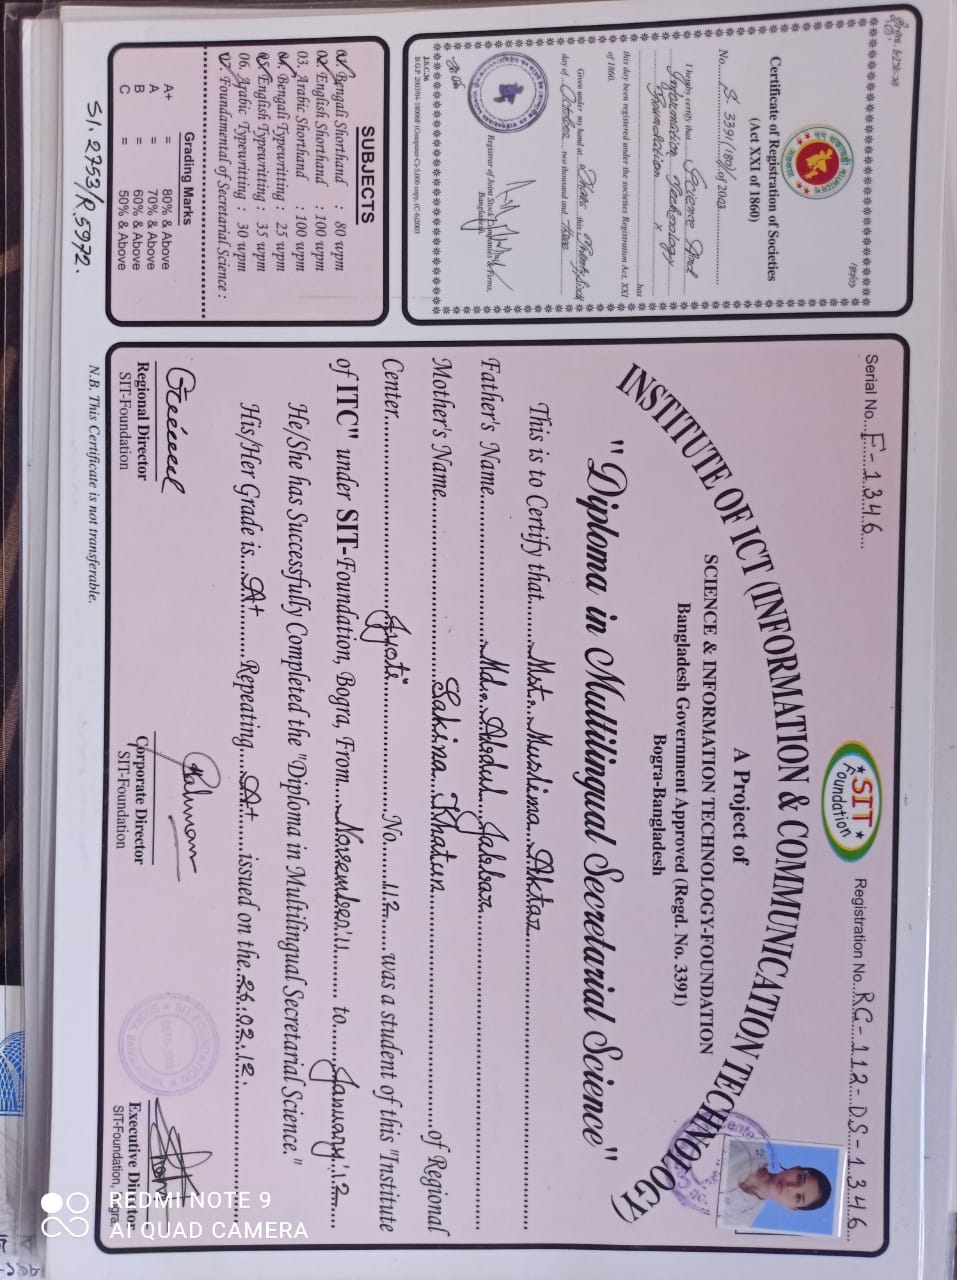 Certificate of Registration of Societies
(Act XXI of 1860)
180/03
No....S. 3391(180)/of 2003
I hereby certify that.....Science And
Information Technology
Foundation.......x......has
this day been registered under the societies Registration Act, XXI
of 1860.
Given under my hand at Dhaka this
day of October two thousand and Three
Registrar of Joint Stock Companies & Firms,
Bangladesh.
J.S.C.36
SUBJECTS
01. Bengali Shorthand : 80 wpm
02. English Shorthand : 100 wpm
03. Arabic Shorthand : 100 wpm
04. Bengali Typewritting : 25 wpm
05. English Typewritting : 35 wpm
06. Arabic Typewritting : 30 wpm
07. Foundamental of Secretarial Science :
Grading Marks
A+ = 80% & Above
A = 70% & Above
B = 60% & Above
C = 50% & Above
Sl. 2753/R.5972.
Serial No....F-1346....
SIT
Foundation
Registration No...RG-112-DS-1346...
INSTITUTE OF ICT (INFORMATION & COMMUNICATION TECHNOLOGY)
A Project of
SCIENCE & INFORMATION TECHNOLOGY-FOUNDATION
Bangladesh Government Approved (Regd. No. 3391)
Bogra-Bangladesh
"Diploma in Multilingual Secretarial Science"
This is to Certify that.......Mst. Muslima Aktar
Father's Name......Md. Abdul Jabbar
Mother's Name......Sakina Khatun......of Regional
Center......Jyoti......No......112......was a student of this "Institute
of ITC" under SIT-Foundation, Bogra, From....November'11...... to.....January'12....
He/She has Successfully Completed the "Diploma in Multilingual Secretarial Science."
His/Her Grade is....A+......Repeating....A+......issued on the..26.02.12.
Regional Director
SIT-Foundation
Rahman
Corporate Director
SIT-Foundation
Executive Director
SIT-Foundation, Bogra
N.B. This Certificate is not transferable.
REDMI NOTE 9
AI QUAD CAMERA